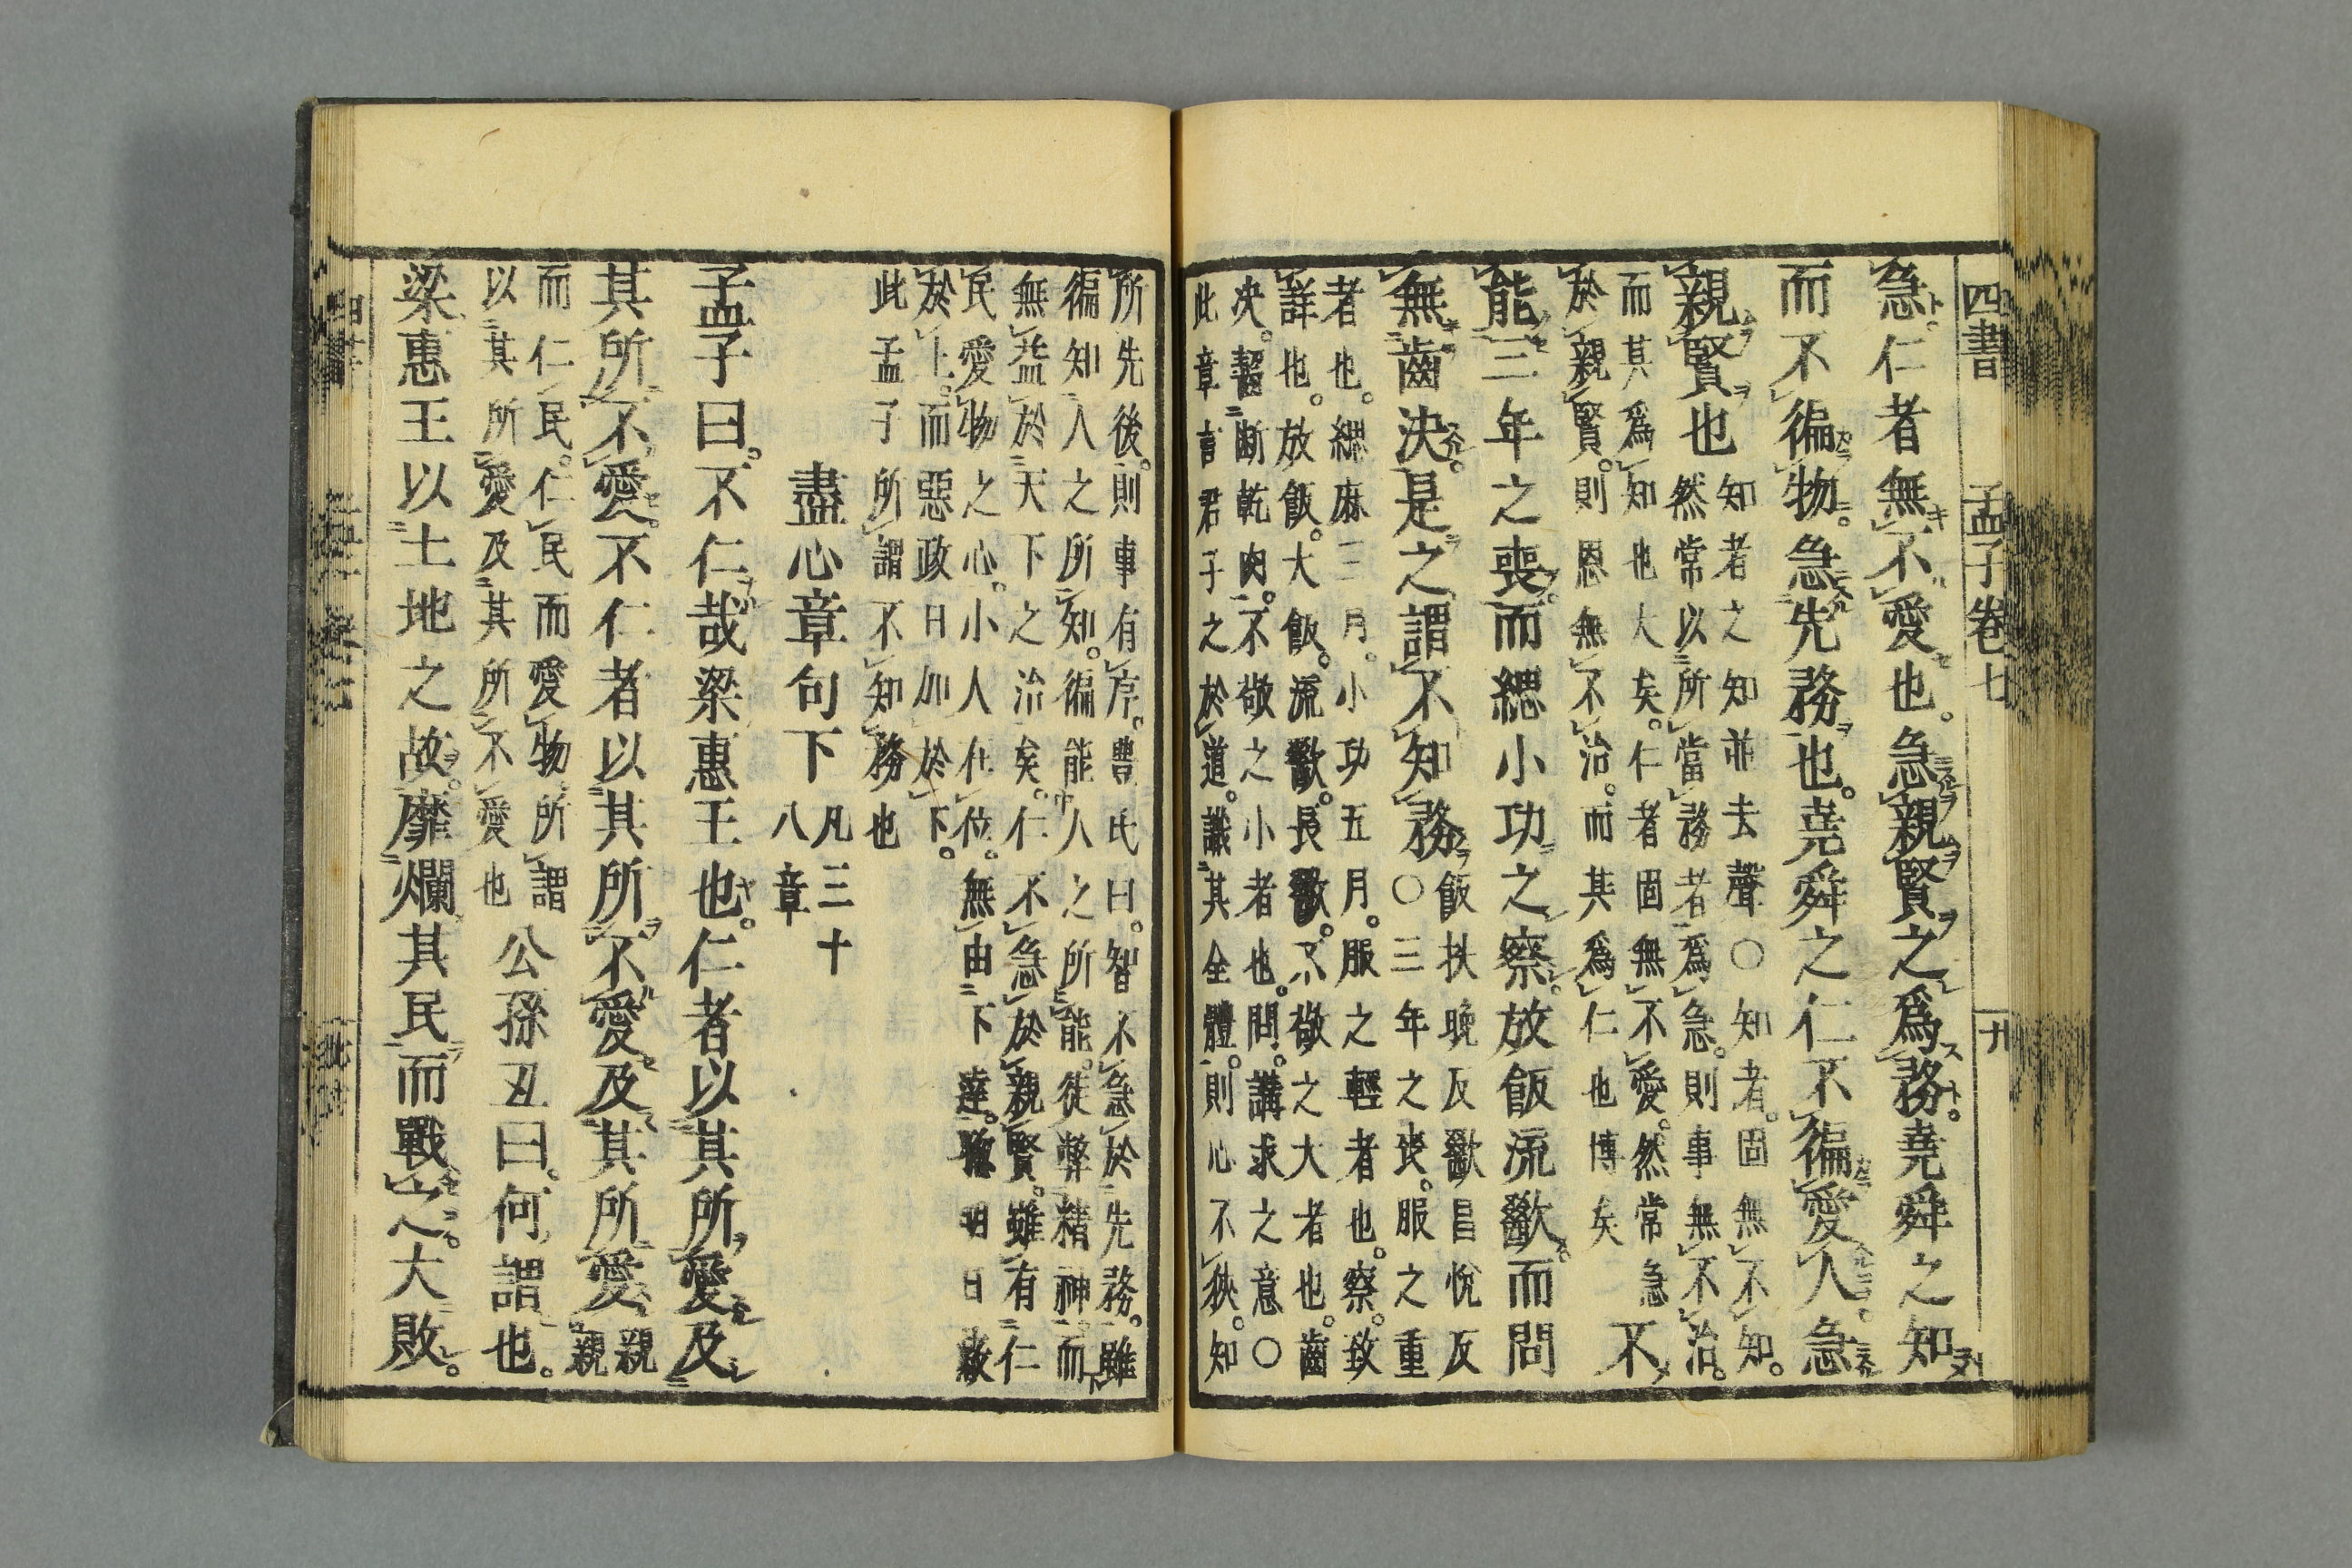 四書 孟子卷七
急。仁者無不愛也。急親賢之爲務。堯舜之知
而不徧物。急先務也。堯舜之仁不徧愛人。急
親賢也
知者之知並去聲○知者。固無不知。
然常以所當務者爲急。則事無不治。
而其爲知也大矣。仁者固無不愛。然常急
於親賢。則恩無不洽。而其爲仁也博矣
不
能三年之喪。而緦小功之察。放飯流歠。而問
無齒決。是之謂不知務
飯扶晚反歠昌悅反
○三年之喪。服之重
者也。緦麻三月。小功五月。服之輕者也。察。致
詳也。放飯。大飯。流歠。長歠。不敬之大者也。齒
决。齧斷乾肉。不敬之小者也。問。講求之意○
此章言君子之於道。識其全體。則心不狹。知
所先後。則事有序。豐氏曰。智不急於先務。雖
徧知人之所知。徧能人之所能。徒弊精神。而
無益於天下之治矣。仁不急於親賢。雖有仁
民愛物之心。小人在位。無由下達。聰明日蔽
於上。而惡政日加於下。
此孟子所謂不知務也
盡心章句下
凡三十
八章
孟子曰。不仁哉梁惠王也。仁者以其所愛及
其所不愛。不仁者以其所不愛及其所愛
親親
而仁民。仁民而愛物。所謂
以其所愛及其所不愛也
公孫丑曰。何謂也。
梁惠王以土地之故。糜爛其民而戰之。大敗。